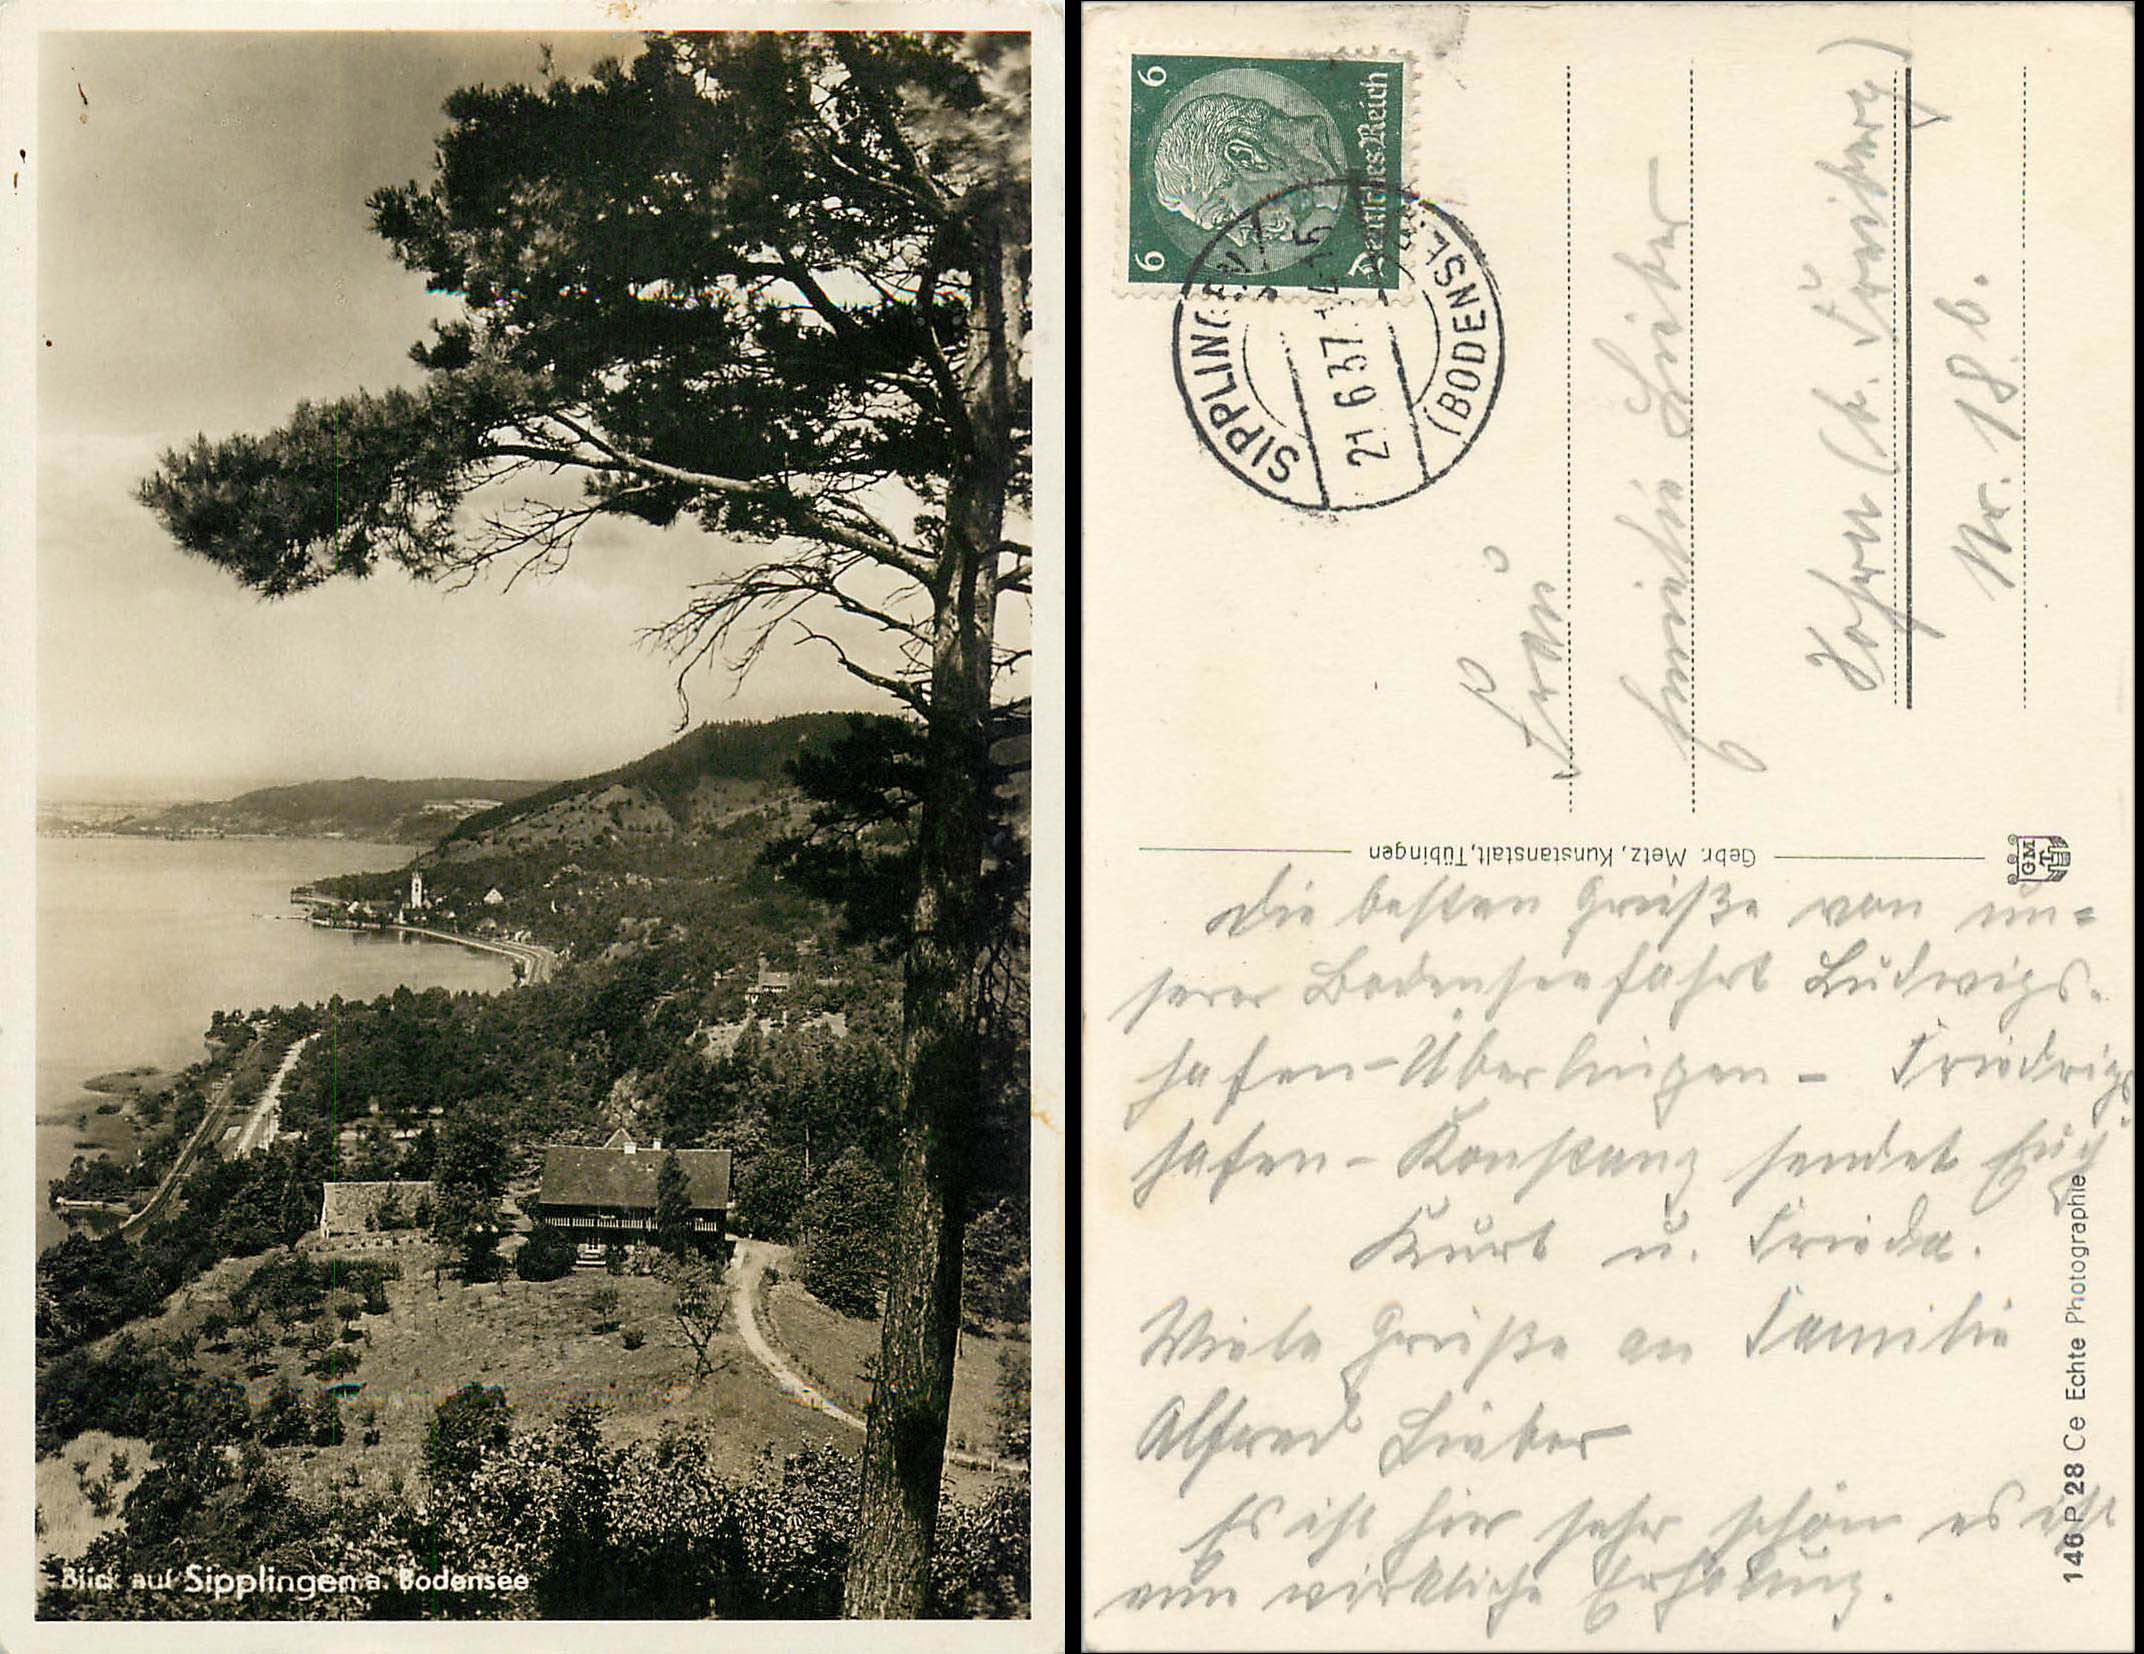 Blick auf Sipplingen a. Bodensee
6 6
Deutsches Reich
SIPPLINGEN
21.6.37
(BODENSEE)
Frau
Lieber
(b. Freiberg)
Nr. 18b.
Gebr. Metz, Kunstanstalt, Tübingen
GM
T
Die besten Grüße von un=
serer Bodenseefahrt Ludwigs-
hafen-Überlingen - Friedrichs
hafen-Konstanz sendet Euch
Kurt u. Frieda.
Viele Grüße an Familie
Alfred Lieber
Es ist hier sehr schön es ist
eine wirkliche Erholung.
146 P 28 Ce Echte Photographie